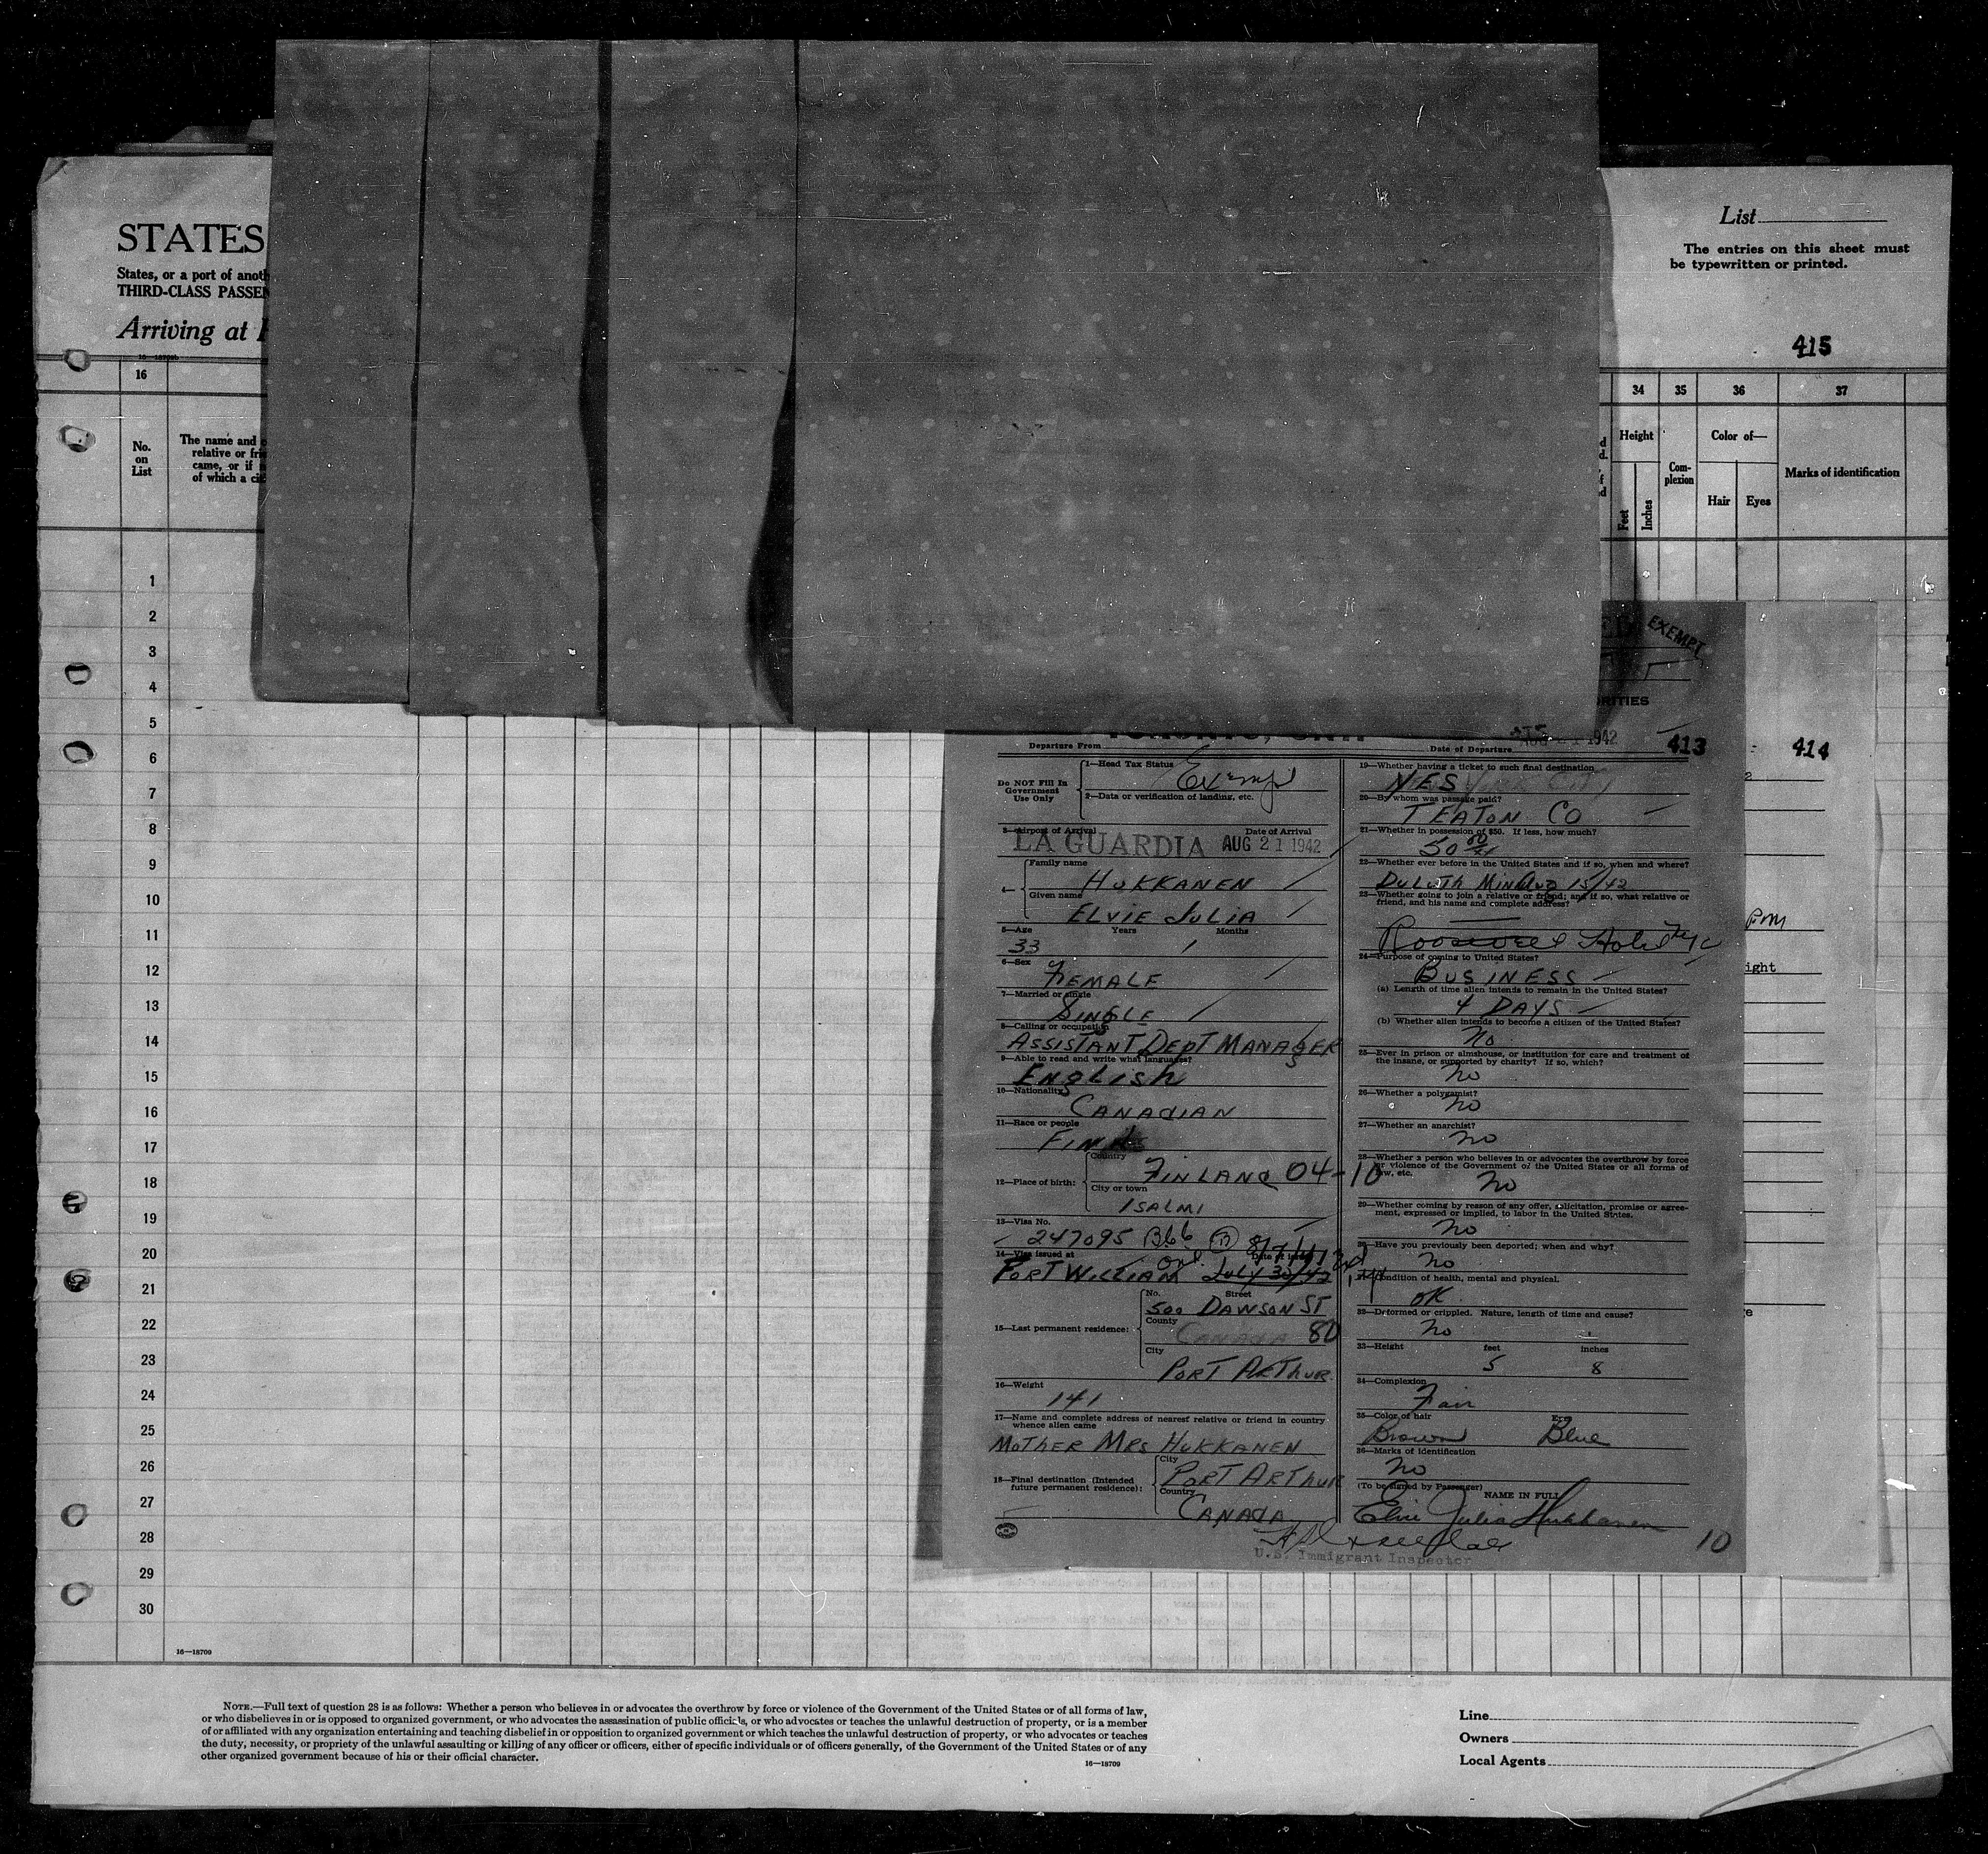 STATES
States, or a port of anoth
THIRD-CLASS PASSEN
Arriving at
List
The entries on this sheet must
be typewritten or printed.
415
16
No.
on
List
The name and
relative or frie
came, or if
of which a cit
34
35
36
37
Height
Feet
Inches
Com-
plexion
Color of—
Hair
Eyes
Marks of identification
1
2
3
4
5
6
7
8
9
10
11
12
13
14
15
16
17
18
19
20
21
22
23
24
25
26
27
28
29
30
16—18709
EXEMPT
RITIES
Departure From
Date of Departure
1942
413
414
Do NOT Fill In
Government
Use Only
1—Head Tax Status
Exempt
2—Data or verification of landing, etc.
3—Airport of Arrival
Date of Arrival
LA GUARDIA AUG 21 1942
4—
Family name
HUKKANEN
Given name
ELVIE JULIA
5—Age
Years
Months
33
6—Sex
FEMALE
7—Married or single
SINGLE
8—Calling or occupation
ASSISTANT DEPT MANAGER
9—Able to read and write what languages?
ENGLISH
10—Nationality
CANADIAN
11—Race or people
12—Place of birth:
Country
FINLAND 04-10
City or town
ISALMI
13—Visa No.
247095 B66
14—Visa issued at
Date of issue
PORT WILLIAM Ont. JULY 30/42
15—Last permanent residence:
No.
Street
500 DAWSON ST
County
CANADA 80
City
PORT ARTHUR
16—Weight
141
17—Name and complete address of nearest relative or friend in country
whence alien came
MOTHER MRS HUKKANEN
18—Final destination (Intended
future permanent residence):
City
PORT ARTHUR
Country
CANADA
19—Whether having a ticket to such final destination
YES
20—By whom was passage paid?
T EATON CO
21—Whether in possession of $50. If less, how much?
50
22—Whether ever before in the United States and if so, when and where?
DULUTH MINN AUG 15/42
23—Whether going to join a relative or friend; and if so, what relative or
friend, and his name and complete address?
Roosevelt Hotel NYC
24—Purpose of coming to United States?
BUSINESS
(a) Length of time alien intends to remain in the United States?
4 DAYS
(b) Whether alien intends to become a citizen of the United States?
No
25—Ever in prison or almshouse, or institution for care and treatment of
the insane, or supported by charity? If so, which?
no
26—Whether a polygamist?
no
27—Whether an anarchist?
no
28—Whether a person who believes in or advocates the overthrow by force
or violence of the Government of the United States or all forms of
law, etc.
no
29—Whether coming by reason of any offer, solicitation, promise or agree-
ment, expressed or implied, to labor in the United States.
no
30—Have you previously been deported; when and why?
no
31—Condition of health, mental and physical.
OK
32—Deformed or crippled. Nature, length of time and cause?
no
33—Height
feet
inches
5
8
34—Complexion
Fair
35—Color of hair
Eyes
Brown
Blue
36—Marks of identification
no
(To be signed by Passenger)
NAME IN FULL
Elvie Julia Hukkanen
U.S. Immigrant Inspector
10
PM
ight
NOTE.—Full text of question 28 is as follows: Whether a person who believes in or advocates the overthrow by force or violence of the Government of the United States or of all forms of law,
or who disbelieves in or is opposed to organized government, or who advocates the assassination of public officials, or who advocates or teaches the unlawful destruction of property, or is a member
of or affiliated with any organization entertaining and teaching disbelief in or opposition to organized government or which teaches the unlawful destruction of property, or who advocates or teaches
the duty, necessity, or propriety of the unlawful assaulting or killing of any officer or officers, either of specific individuals or of officers generally, of the Government of the United States or of any
other organized government because of his or their official character.
16—18709
Line
Owners
Local Agents